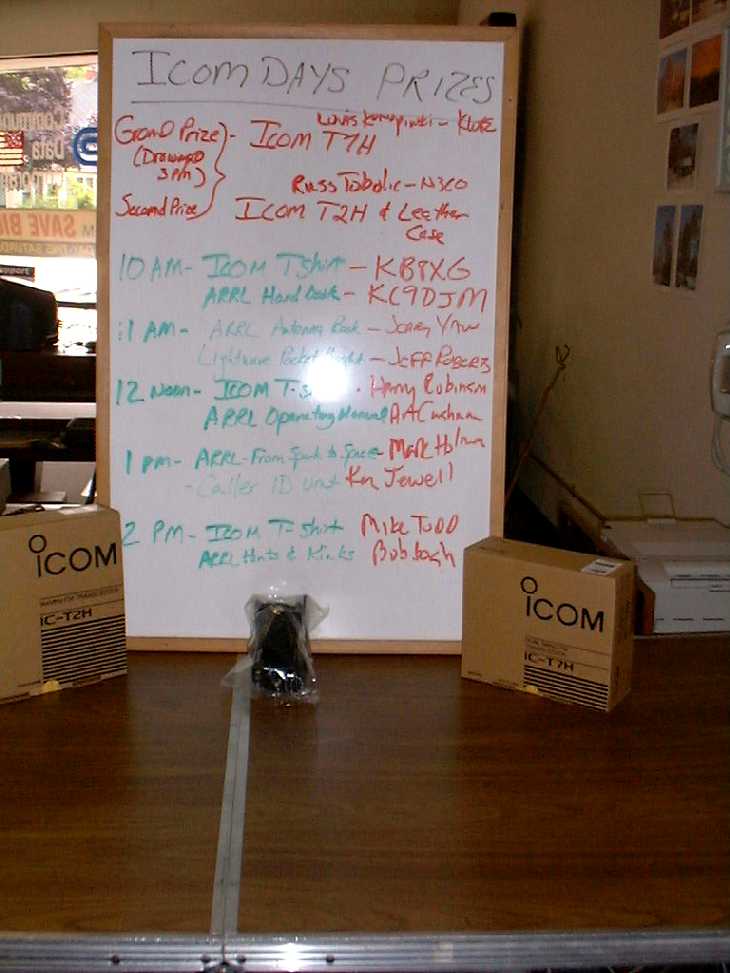 ICOM DAYS PRIZES
Louis - K
Grand Prize - ICOM T7H
(Drawing
3 pm)
Russ - N3CO
Second Prize ICOM T2H & Leather
Case
10 AM - ICOM T Shirt - KB8XG
ARRL Hand Book - KC9DJM
11 AM - ARRL Antenna Book - Jerry
Lightwave Pocket - Jeff Roberts
12 Noon - ICOM T-S - Harry Robinson
ARRL Operating Manual
1 pm - ARRL - From Spark to Space - Mark
- Caller ID unit Ken Jewell
2 PM - ICOM T-Shirt Mike Todd
ARRL Hints & Kinks Bob
ICOM
IC-T2H
ICOM
IC-T7H
Data
SAVE BIG